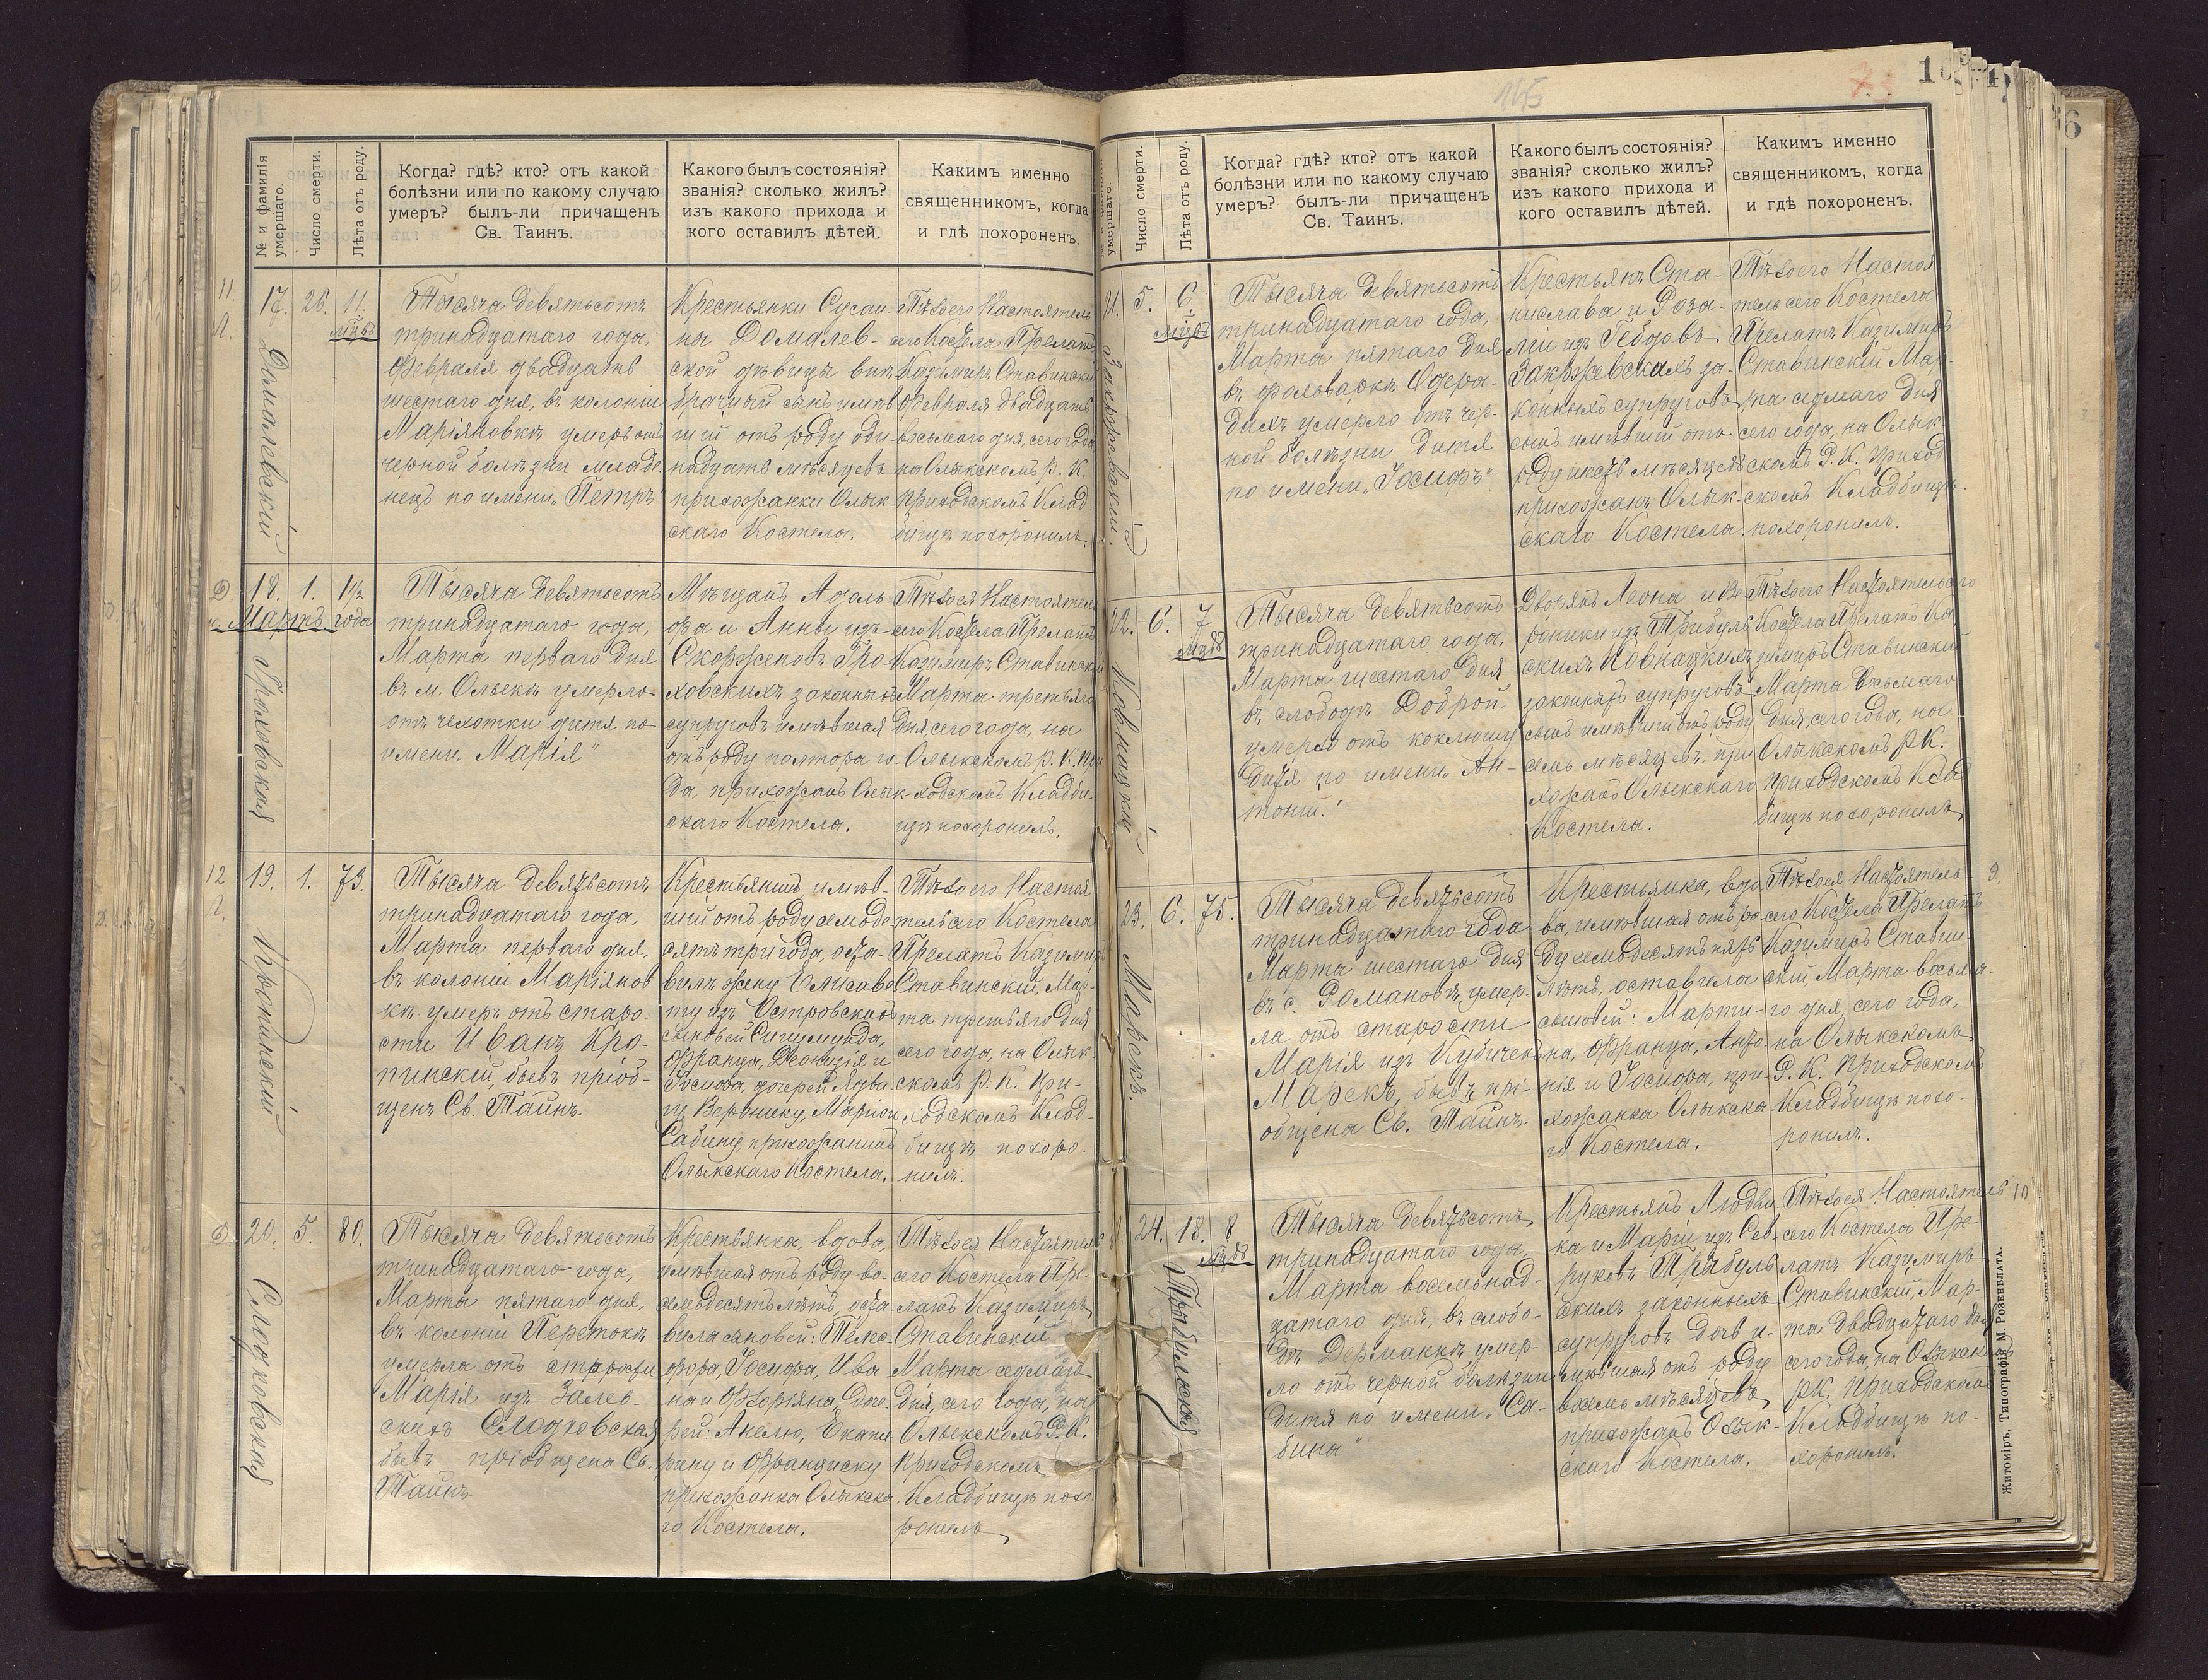 № и фамилія умершаго.
Число смерти.
Лѣта отъ роду.
Когда? гдѣ? кто? отъ какой
болѣзни или по какому случаю
умеръ? былъ-ли причащенъ
Св. Таинъ.
Какого былъ состоянія?
званія? сколько жилъ?
изъ какого прихода и
кого оставилъ дѣтей.
Какимъ именно
священникомъ, когда
и гдѣ похороненъ.
11.
17. 26. 11.
мцвъ
Домалевскій
Тысяча девятьсотъ
тринадцатаго года,
Февраля двадцать
шестаго дня, въ колоніи
Маріяновкѣ умеръ отъ
черной болѣзни младе-
нецъ по имени „Петръ"
Крестьянки Сусан-
ны Домалев-
ской дѣвицы внѣ
брачный сынъ имѣв
шій отъ роду оди-
надцать мѣсяцевъ
прихожанки Олык-
скаго Костела.
Тѣло его Настоятель
сего Костела Прелатъ
Казимиръ Ставинскій
Февраля двадцать
восьмаго дня, сего года
на Олыкскомъ Р. К.
Приходскомъ Клад
бищѣ похоронилъ.
18. 1. 1½
Мартъ года
Гроховская
Тысяча девятьсотъ
тринадцатаго года,
Марта перваго дня
въ м. Олыкѣ умерло
отъ чахотки дитя по
имени „Марія"
Мѣщанъ Адоль-
фа и Анны изъ
Скорженовъ Гро-
ховскихъ законныхъ
супруговъ имѣвшая
отъ роду полтора го-
да, прихожанъ Олык-
скаго Костела.
Тѣло ея Настоятель
сего Костела Прелатъ
Казимиръ Ставинскій
Марта третьяго
дня, сего года, на
Олыкскомъ Р. К. При
ходскомъ Кладби-
щѣ похоронилъ.
12
19. 1. 73.
Кропинскій
Тысяча девятьсотъ
тринадцатаго года,
Марта перваго дня,
въ колоніи Маріянов
кѣ умеръ отъ старо-
сти Иванъ Кро-
пинскій, бывъ пріоб-
щенъ Св. Таинъ.
Крестьянинъ имѣв-
шій отъ роду семьде-
сятъ три года, оста-
вилъ жену Елисаве
ту изъ Островскихъ
сыновей Сигизмунда,
Франца, Діонизія и
Іосифа, дочерей Ядви-
гу, Веронику, Марію и
Сабину, прихожанинъ
Олыкскаго Костела.
Тѣло его Настоя
тель сего Костела
Прелатъ Казимиръ
Ставинскій, Мар-
та третьяго дня
сего года, на Олык-
скомъ Р. К. При-
ходскомъ Клад-
бищѣ похоро-
нилъ.
20. 5. 80.
Слодковская
Тысяча девятьсотъ
тринадцатаго года,
Марта пятаго дня,
въ колоніи Перетокѣ
умерла отъ старости
Марія изъ Залев-
скихъ Слодковская
бывъ пріобщена Св.
Таинъ
Крестьянка, вдова,
имѣвшая отъ роду во-
семьдесятъ лѣтъ, оста-
вила сыновей: Телес-
фора, Іосифа, Ива
на и Флоріяна, доче-
рей: Анелю, Екате-
рину и Франциску
прихожанка Олыкска-
го Костела.
Тѣло ея Настоятель
сего Костела Пре-
латъ Казимиръ
Ставинскій
Марта седмаго
дня, сего года, на
Олыкскомъ Р. К.
Приходскомъ
Кладбищѣ похо-
ронилъ
165
умершаго.
Число смерти.
Лѣта отъ роду.
Когда? гдѣ? кто? отъ какой
болѣзни или по какому случаю
умеръ? былъ-ли причащенъ
Св. Таинъ.
Какого былъ состоянія?
званія? сколько жилъ?
изъ какого прихода и
кого оставилъ дѣтей.
Какимъ именно
священникомъ, когда
и гдѣ похороненъ.
21. 5. 6.
мцвъ
Закржевскій.
Тысяча девятьсотъ
тринадцатаго года,
Марта пятаго дня
въ фольваркѣ Одера-
дахъ умерло отъ чер-
ной болѣзни дитя
по имени „Іосифъ"
Крестьянъ Ста-
нислава и Роза-
ліи изъ
Закржевскихъ за-
конныхъ супруговъ,
сынъ имѣвшій отъ
роду шесть мѣсяцевъ
прихожанъ Олык-
скаго Костела.
Тѣло его Настоя
тель сего Костела
Прелатъ Казимиръ
Ставинскій Мар-
та седмаго дня
сего года, на Олык-
скомъ Р. К. приход
скомъ Кладбищѣ
похоронилъ.
22. 6. 7
мцвъ
Ковнацкій
Тысяча девятьсотъ
тринадцатаго года,
Марта шестаго дня
въ слободѣ Доброй
умерло отъ коклюшу
дитя по имени „Ан-
тоній"
Дворянъ Леона и Ве
роники изъ Трибуль
скихъ Ковнацкихъ
законныхъ супруговъ
сынъ имѣвшій отъ роду
семь мѣсяцевъ, при
хожанъ Олыкскаго
Костела.
Тѣло его Настоятель сего
Костела Прелатъ Ка
зимиръ Ставинскій
Марта восьмаго
дня, сего года, на
Олыкскомъ Р.К.
Приходскомъ Клад
бищѣ похоронилъ
23. 6. 75.
Марекъ.
Тысяча девятьсотъ
тринадцатаго года
Марта шестаго дня
въ с. Романовѣ умер-
ла отъ старости
Марія изъ Кубичекъ
Марекъ, бывъ прі-
общена Св. Таинъ.
Крестьянка, вдо
ва, имѣвшая отъ ро
ду семьдесятъ пять
лѣтъ, оставила
сыновей: Марти-
на, Франца, Анто-
нія и Іосифа, при-
хожанка Олыкска
го Костела.
Тѣло ея Настоятель
сего Костела Прелатъ
Казимиръ Ставин-
скій, Марта восьма-
го дня, сего года,
на Олыкскомъ
Р. К. Приходскомъ
Кладбищѣ похо-
ронилъ.
24. 18. 8
мцвъ
Трибульская
Тысяча девятьсотъ
тринадцатаго года,
Марта восемьнад-
цатаго дня, въ слобо-
дѣ Дерманкѣ умер-
ло отъ черной болѣзни
дитя по имени „Са-
бина"
Крестьянъ Людви
ка и Маріи изъ Сев-
руковъ Трибуль
скихъ законныхъ
супруговъ дочь и-
мѣвшая отъ роду
восемь мѣсяцевъ
прихожанъ Олык-
скаго Костела.
Тѣло ея Настоятель
сего Костела Пре-
латъ Казимиръ
Ставинскій, Мар-
та двадцатаго дня
сего года, на Олыкскомъ
Р.К. Приходскомъ
Кладбищѣ по-
хоронилъ.
10.
Житоміръ, Типографія М. Розенблата.
6